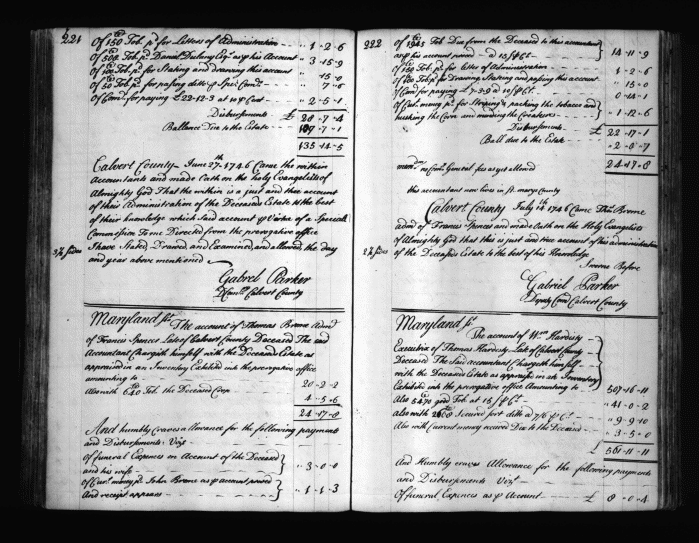 221
Of 150 Tob. pd for Letters of Administration 1-2-6
Of 500 Tob. pd Daniel Dulany Esqr as p his Account 3-15-9
Of 100 Tob. pd for Stating and drawing this account 15-0
Of 50 Tob. pd for passing ditto p Spec. Comn. 7-6
Of Comn. for paying £22-12-3 at 10 p Cent 2-5-1
Disbursements £ 28-7-4
Ballance Due to the Estate 107-7-1
135-14-5
Calvert County June 27th 1746 Came the within
Accountants and made Oath on the Holy Evangelists of
Almighty God That the within is a just and true account
of their Administration of the Deceaseds Estate to the best
of their knowledge which said account p Virtue of a Speciall
Commission To me Directed from the prerogative office
I have Stated, Drawed and Examined, and allowed, the day
and year above mentioned
Gabriel Parker
D Comry Calvert County
Maryland sst. The account of Thomas Brome Admr
of Francis Spences Late of Calvert County Deceased The said
Accountant Chargeth himself with the Deceaseds Estate as
appraised in an Inventory Exhibited into the prerogative office
amounting to 20-2-2
Also with 640 Tob. the Deceased Crop 4-5-6
24-17-8
And humbly craves allowance for the following payments
and Disbursements Vizt
Of funeral Expences on Account of the Deceased
and his wife 3-0-0
Of Curt money pd John Brome as p account proved
And receipt appears 1-1-3
222
of 1945 Tob. Due from the Deceased to this accountant
as p his account proved at 15/ p Ct 14-11-9
Of 150 Tob. pd for Letter of Administration 1-2-6
Of 100 Tob. pd for Drawing Stating and passing this account 15-0
Of Comn for paying £7-2-9 at 10 p Ct 0-14-1
Of Curt. money pd for Striping & packing the tobacco and
husking the Corn and mending the Creatures 1-12-6
Disbursements £ 22-17-1
Ball due to the Estate 2-0-7
24-17-8
memo. no Comn General fees as yet allowed
this accountant now lives in St. marys County
Calvert County July 1746 Came Thos Brome
admr of Francis Spences and made Oath on the Holy Evangelists
of Almighty God that this is just and true account of his administration
of the Deceaseds Estate to the best of his Knowledge
Sworne Before
Gabriel Parker
Deputy Com Calvert County
Maryland sst.
The account of Wm Hardisty
Executrix of Thomas Hardisty Late of Calvert County
Deceased The Said accountant Chargeth himself
with the Deceaseds Estate as appraised in an Inventory
Exhibited into the prerogative office Amounting to 507-16-11
Also 5470 Tob at 15/ p Ct 41-0-2
also with 2608 Received for debts at 7/6 p Ct 9-9-10
Also with Current money received Due to the Deceased 3-5-0
£ 561-11-11
And Humbly craves Allowance for the following payments
and Disbursments Vizt
Of funeral Expences as p Account £ 8-0-4